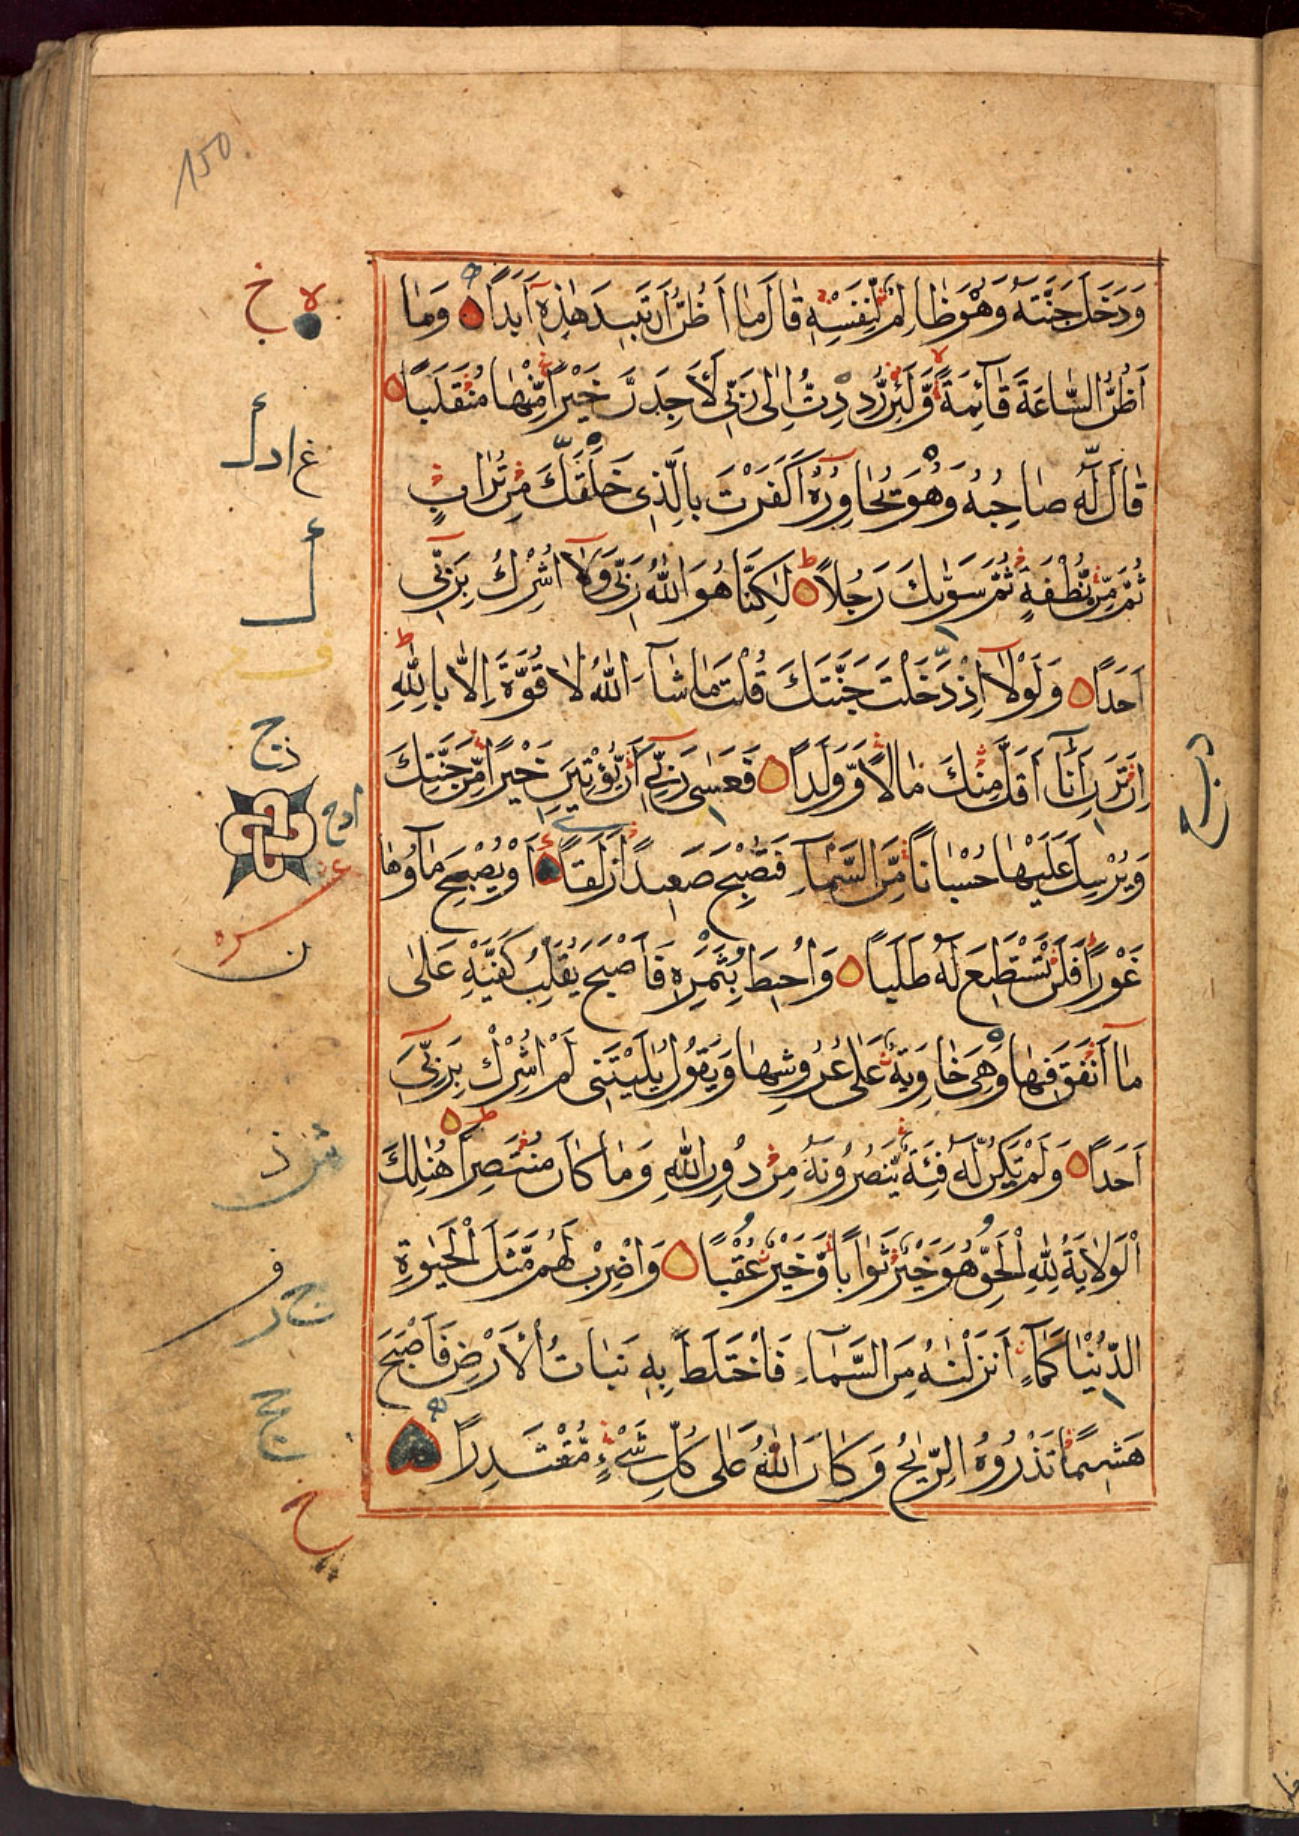 150
وَدَخَلَ جَنَّتَهُ وَهُوَ ظَالِمٌ لِنَفْسِهِ قَالَ مَا أَظُنُّ أَنْ تَبِيدَ هٰذِهِ أَبَدًا وَمَا
أَظُنُّ السَّاعَةَ قَآئِمَةً وَّلَئِنْ رُّدِدْتُ اِلٰى رَبِّى لَأَجِدَنَّ خَيْرًا مِّنْهَا مُنْقَلَبًا
قَالَ لَهُ صَاحِبُهُ وَهُوَ يُحَاوِرُهُ أَكَفَرْتَ بِالَّذِى خَلَقَكَ مِنْ تُرَابٍ
ثُمَّ مِنْ نُّطْفَةٍ ثُمَّ سَوّٰىكَ رَجُلًا لٰكِنَّا هُوَ اللّٰهُ رَبِّى وَلَا اُشْرِكُ بِرَبِّى
اَحَدًا وَلَوْلَا اِذْ دَخَلْتَ جَنَّتَكَ قُلْتَ مَا شَآءَ اللّٰهُ لَا قُوَّةَ اِلَّا بِاللّٰهِ
اِنْ تَرَنِ اَنَا اَقَلَّ مِنْكَ مَالًا وَّوَلَدًا فَعَسٰى رَبِّى اَنْ يُّؤْتِيَنِ خَيْرًا مِّنْ جَنَّتِكَ
وَيُرْسِلَ عَلَيْهَا حُسْبَانًا مِّنَ السَّمَآءِ فَتُصْبِحَ صَعِيدًا زَلَقًا اَوْ يُصْبِحَ مَآؤُهَا
غَوْرًا فَلَنْ تَسْتَطِيعَ لَهُ طَلَبًا وَاُحِيطَ بِثَمَرِهِ فَاَصْبَحَ يُقَلِّبُ كَفَّيْهِ عَلٰى
مَا اَنْفَقَ فِيهَا وَهِىَ خَاوِيَةٌ عَلٰى عُرُوشِهَا وَيَقُولُ يٰلَيْتَنِى لَمْ اُشْرِكْ بِرَبِّى
اَحَدًا وَلَمْ تَكُنْ لَّهُ فِئَةٌ يَّنْصُرُونَهُ مِنْ دُونِ اللّٰهِ وَمَا كَانَ مُنْتَصِرًا هُنَالِكَ
الْوَلَايَةُ لِلّٰهِ الْحَقِّ هُوَ خَيْرٌ ثَوَابًا وَّخَيْرٌ عُقْبًا وَاضْرِبْ لَهُمْ مَّثَلَ الْحَيٰوةِ
الدُّنْيَا كَمَآءٍ اَنْزَلْنٰهُ مِنَ السَّمَآءِ فَاخْتَلَطَ بِهِ نَبَاتُ الْاَرْضِ فَاَصْبَحَ
هَشِيمًا تَذْرُوهُ الرِّيٰحُ وَكَانَ اللّٰهُ عَلٰى كُلِّ شَىْءٍ مُّقْتَدِرًا